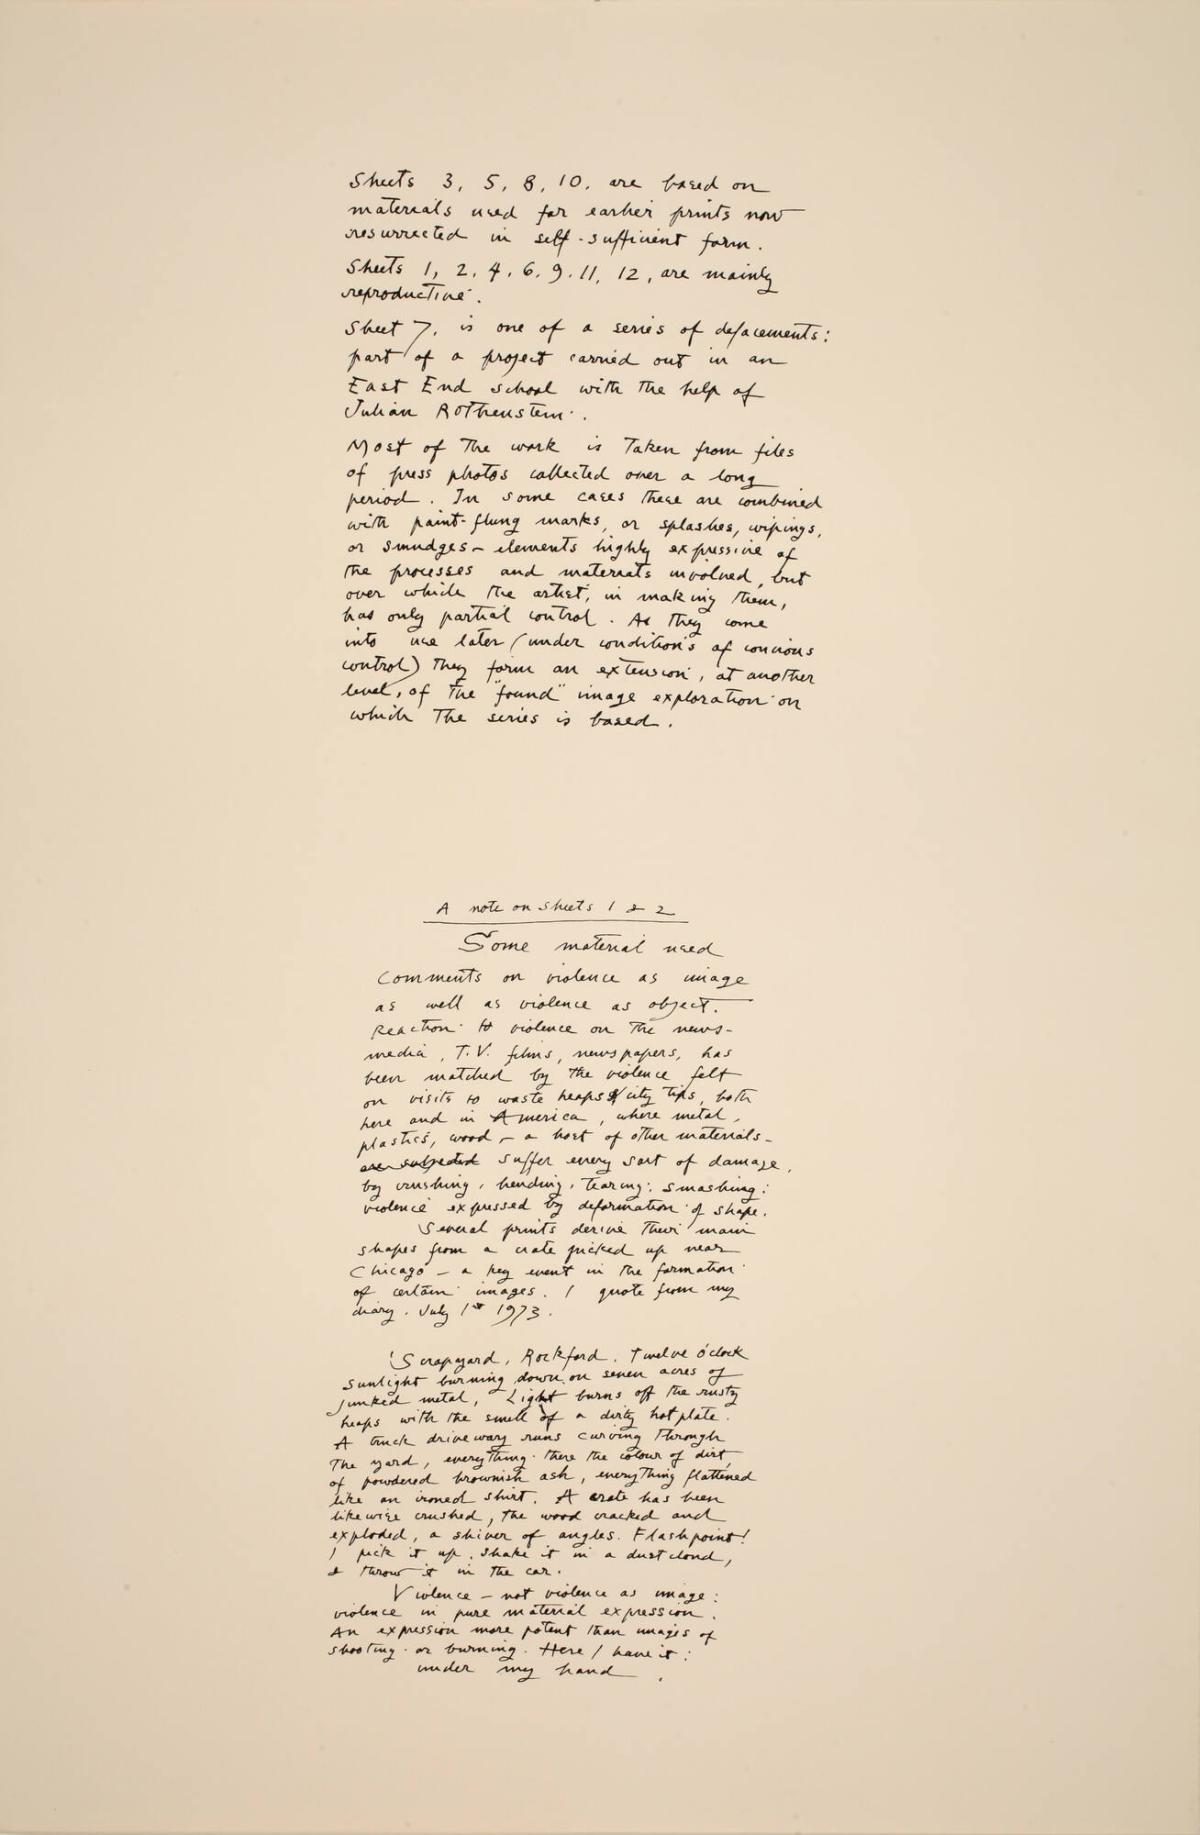 Sheets 3, 5, 8, 10, are based on
materials used for earlier prints now
resurrected in self-sufficient form.
Sheets 1, 2, 4, 6, 9, 11, 12, are mainly
reproductive.
Sheet 7, is one of a series of defacements:
part of a project carried out in an
East End school with the help of
Julian Rothenstein.
Most of the work is taken from files
of press photos collected over a long
period. In some cases these are combined
with paint-flung marks, or splashes, wipings,
or smudges – elements highly expressive of
the processes and materials involved, but
over which the artist, in making them,
has only partial control. As they come
into use later (under conditions of concious
control) they form an extension, at another
level, of the "found" image exploration on
which the series is based.
A note on sheets 1 & 2
Some material used
comments on violence as image
as well as violence as object.
Reaction to violence on the news-
media, T.V. films, newspapers, has
been matched by the violence felt
on visits to waste heaps & city tips, both
here and in America, where metal,
plastics, wood – a host of other materials –
are subjected suffer every sort of damage,
by crushing, bending, tearing, smashing:
violence expressed by deformation of shape.
Several prints derive their main
shapes from a crate picked up near
Chicago – a key event in the formation
of certain images. I quote from my
diary. July 1st 1973.
'Scrapyard, Rockford. Twelve o'clock
sunlight burning down on seven acres of
junked metal, Light burns off the rusty
heaps with the smell of a dirty hotplate.
A truck driveway runs curving through
the yard, everything there the colour of dirt,
of powdered brownish ash, everything flattened
like an ironed shirt. A crate has been
likewise crushed, the wood cracked and
exploded, a shiver of angles. Flashpoint!
I pick it up, shake it in a dust cloud,
& throw it in the car.
Violence – not violence as image:
violence in pure material expression.
An expression more potent than images of
shooting or burning. Here I have it:
under my hand.